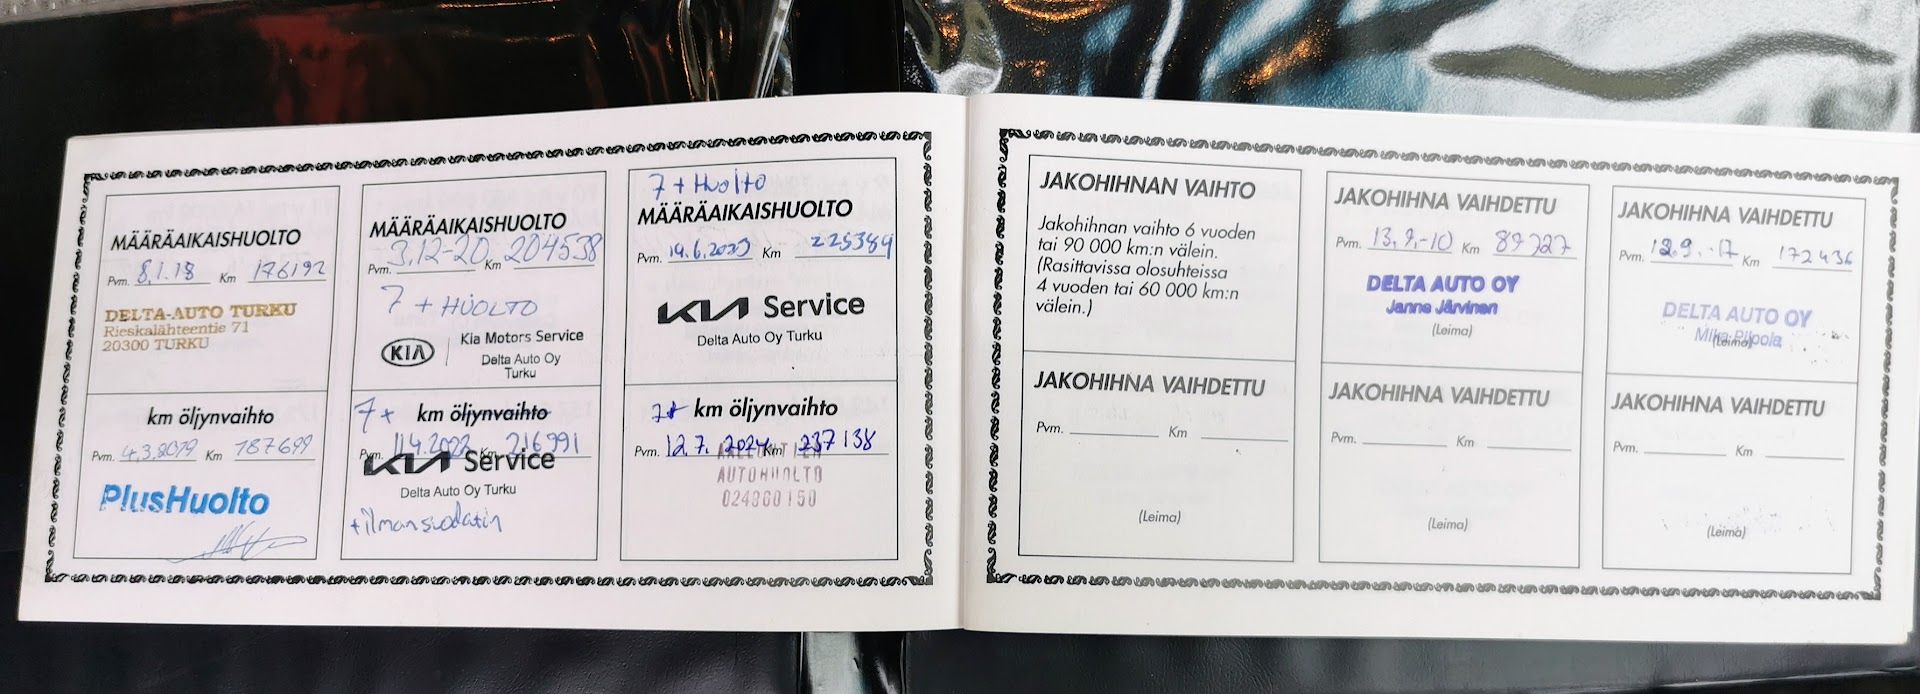 MÄÄRÄAIKAISHUOLTO
Pvm. 8.1.18 Km 176192
DELTA-AUTO TURKU
Rieskalähteentie 71
20300 TURKU
km öljynvaihto
Pvm. 4.3.2019 Km 187699
PlusHuolto
MÄÄRÄAIKAISHUOLTO
Pvm. 3.12-20 Km 204538
7 + HUOLTO
KIA
Kia Motors Service
Delta Auto Oy
Turku
7+ km öljynvaihto
Pvm. 11.4.2022 Km 216991
KIA Service
Delta Auto Oy Turku
+ilmansuodatin
7 + Huolto
MÄÄRÄAIKAISHUOLTO
Pvm. 19.6.2023 Km 225389
KIA Service
Delta Auto Oy Turku
7+ km öljynvaihto
Pvm. 12.7.2024 Km 237138
AUTOHUOLTO
024360150
JAKOHIHNAN VAIHTO
Jakohihnan vaihto 6 vuoden
tai 90 000 km:n välein.
(Rasittavissa olosuhteissa
4 vuoden tai 60 000 km:n
välein.)
JAKOHIHNA VAIHDETTU
Pvm. 13.9.-10 Km 89727
DELTA AUTO OY
Janne Järvinen
(Leima)
JAKOHIHNA VAIHDETTU
Pvm. 12.9.-17 Km 172436
DELTA AUTO OY
Mika Pilpola
(Leima)
JAKOHIHNA VAIHDETTU
Pvm. Km
(Leima)
JAKOHIHNA VAIHDETTU
Pvm. Km
(Leima)
JAKOHIHNA VAIHDETTU
Pvm. Km
(Leima)